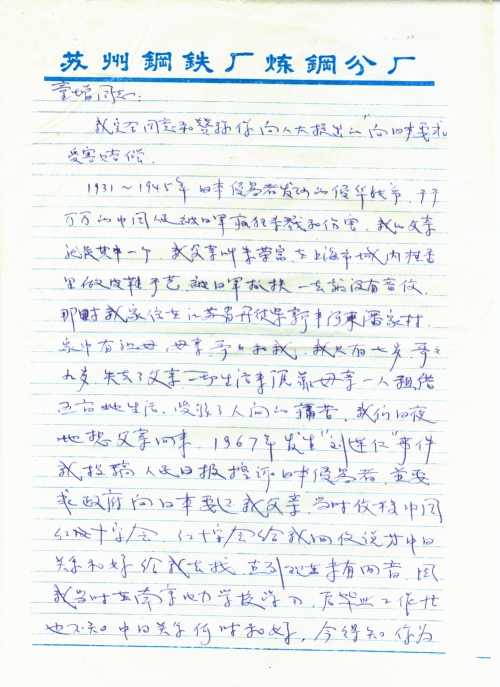 苏州鋼鉄厂炼鋼分厂
童增同志:
我完全同意和赞称你向人大提出的"向日本要求
受害赔偿.
1931～1945年日本侵畧者发动的侵华战争,千千
万万的中国人被日军疯狂杀戮和伤害,我的父亲
就是其中一个,我父亲叫朱荣富在上海市城内
里做皮鞋手艺,被日军抓扶一去就没有音仪,
那时我家住在江苏省丹徒县新丰河東潘家村,
家中有祖母,母亲,哥哥和我,我只有七岁,哥哥
九岁,失去了父亲,一切生活来源靠母亲一人租借
五亩地生活,受尽了人间的痛苦,我们日夜
地想父亲回来,1967年发生"刘连仁"事件
我投稿人民日报控诉日本侵畧者,並要
求政府向日本要还我父亲,当时仪转中国
红十字会,红十字会给我回仪说为中日
关系和好给我去找,直到现在未有回音,因
我当时在南京电力学校学习,后毕业工作忙
也不知中日关系何时和好,今得知你为